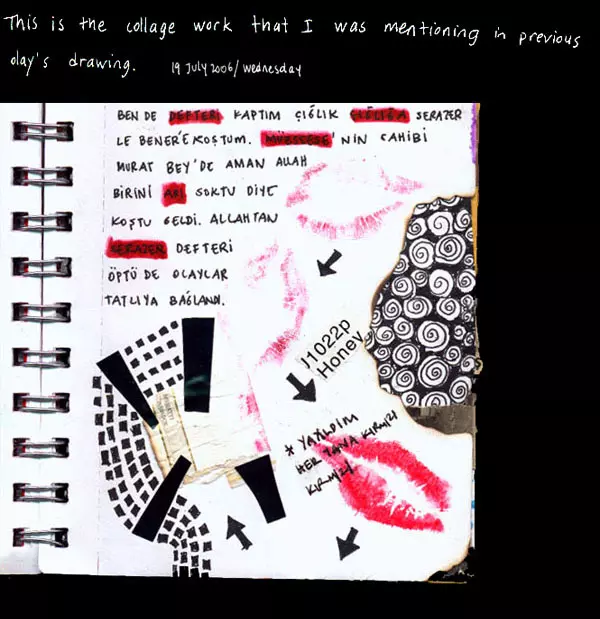 This is the collage work that I was mentioning in previous
day's drawing. 19 JULY 2006/wednesday
BEN DE DEFTERİ KAPTIM ÇIĞLIK ÇIĞLIĞA SERAZER
LE BENER'E KOŞTUM. 'NİN CAHİBİ
MURAT BEY'DE AMAN ALLAH
BİRİNİ ARI SOKTU DİYE
KOŞTU GELDİ. ALLAHTAN
SERAZER DEFTERİ
ÖPTÜ DE OLAYLAR
TATLIYA BAĞLANDI.
J1022p
Honey
* YAZILDIM
HER YANA KIRMIZI
KIRMIZI.